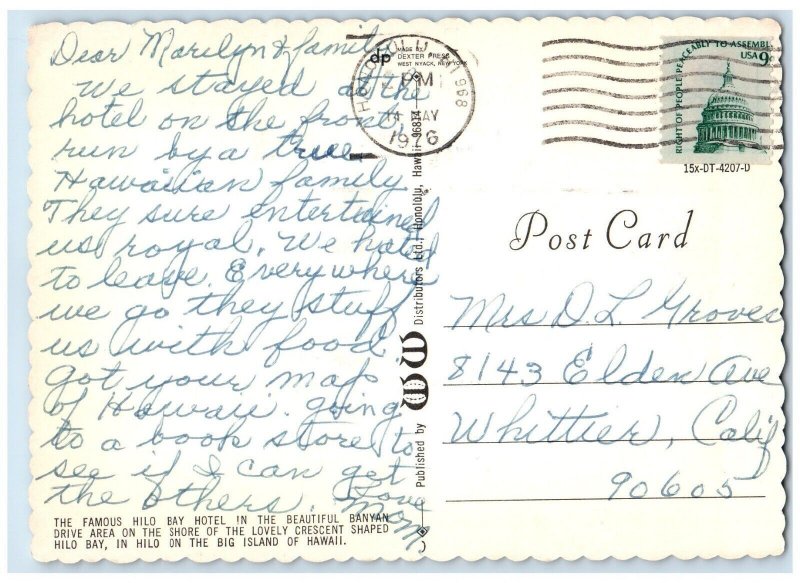 Dear Marilyn & family
We stayed at the
hotel on the front
run by a true
Hawaiian family
They sure entertained
us royal. We hated
to leave. Everywhere
we go they stuff
us with food.
Got your map
of Hawaii. going
to a book store to
see if I can get
the others. Love
Mom
THE FAMOUS HILO BAY HOTEL IN THE BEAUTIFUL BANYAN
DRIVE AREA ON THE SHORE OF THE LOVELY CRESCENT SHAPED
HILO BAY, IN HILO ON THE BIG ISLAND OF HAWAII.
dp
MADE BY
DEXTER PRESS
WEST NYACK, NEW YORK
HONOLULU 968
PM
14 MAY
1976
Published by WW Distributors Ltd., Honolulu, Hawaii 96814
RIGHT OF PEOPLE PEACEABLY TO ASSEMBLE
USA 9c
15x-DT-4207-D
Post Card
Mrs D. L. Groves
8143 Elden Ave
Whittier, Calif
90605